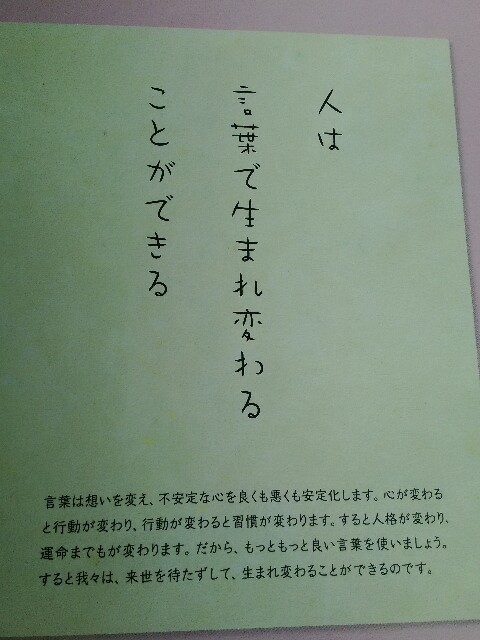 人は
言葉で生まれ変わる
ことができる
言葉は想いを変え、不安定な心を良くも悪くも安定化します。心が変わる
と行動が変わり、行動が変わると習慣が変わります。すると人格が変わり、
運命までもが変わります。だから、もっともっと良い言葉を使いましょう。
すると我々は、来世を待たずして、生まれ変わることができるのです。